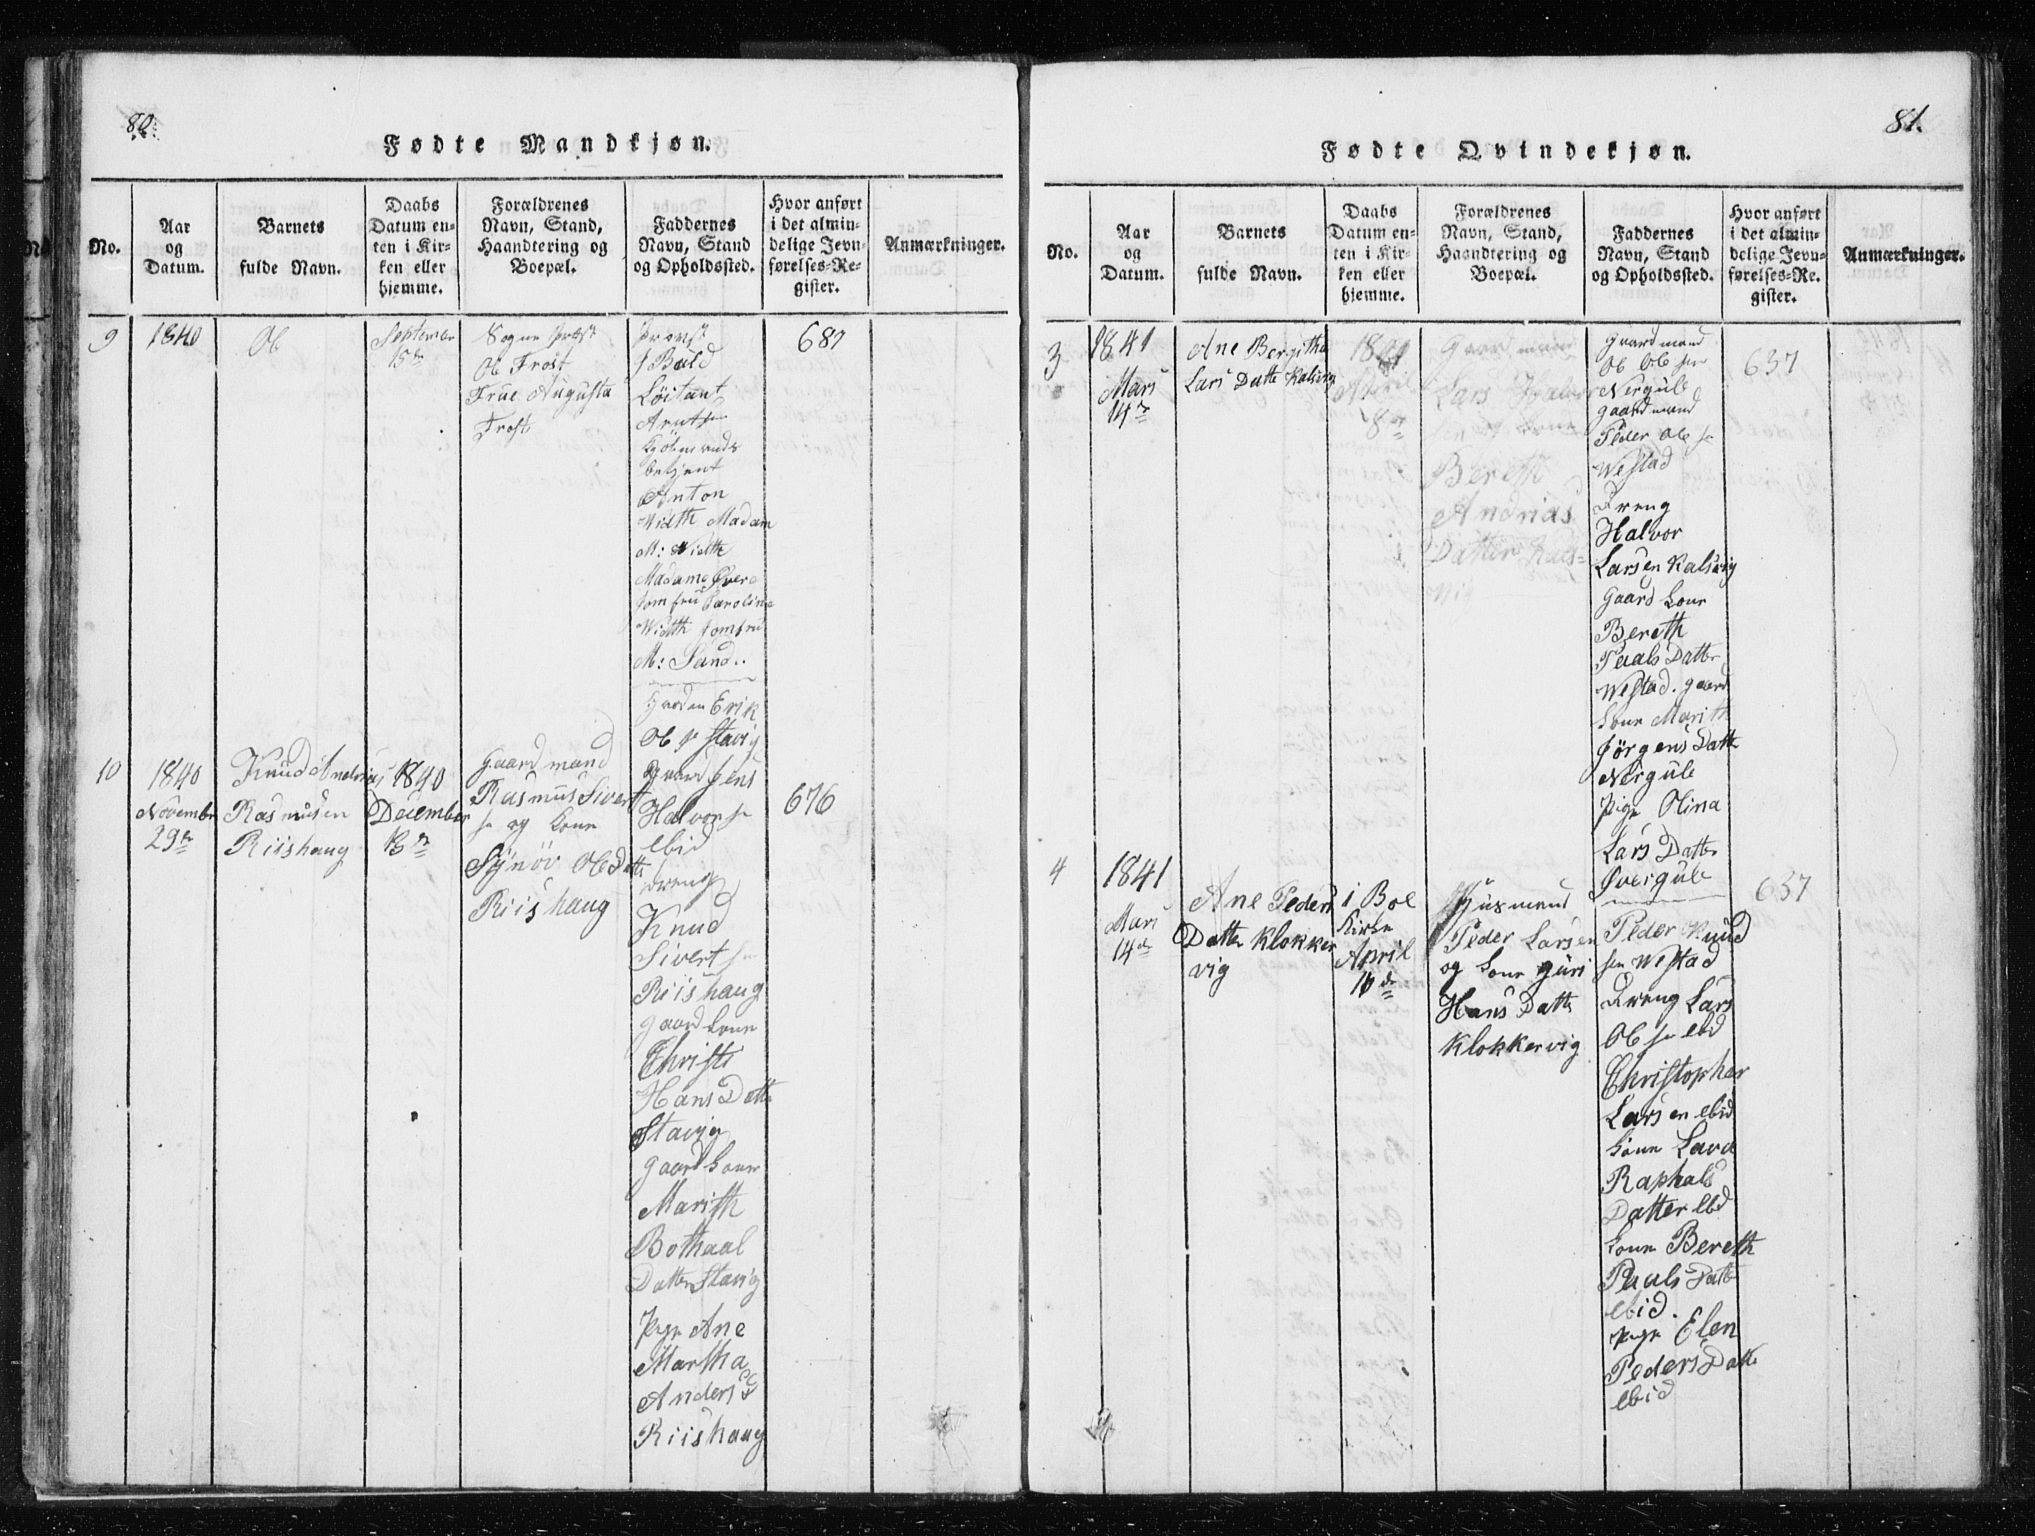 80.
Fødte Mandkjøn.
No.
Aar
og
Datum.
Barnets
fulde Navn.
Daabs
Datum en-
ten i Kir-
ken eller
hjemme.
Forældrenes
Navn, Stand,
Haandtering og
Boepæl.
Faddernes
Navn, Stand
og Opholdssted.
Hvor anført
i det almin-
delige Jevn-
førelses-Re-
gister.
Anmærkninger.
9
1840
Ole
September
15de
Sogne Præst
Ole Frost
Frue Augusta
Frost
Provst
Løitant
Kjöbmands
betjent
Anton
Width Madam
M: Width
Madame
Jomfru Caroline
Width Jomfru
M: Sand..
Erik
Ole s Stavig
687
10
1840
November
29de
Knud Andreas
Rasmusen
Riishaug
1840
December
Gaardmand
Rasmus Sivert
sen og kone
Synöv Ole Datter
Riishaug
Jens
Halvorsen
ebid
Dreng
Knud
Sivertsen
Riishaug
Gaard kone
Christi
Hans Datter
Stavig
Gaard kone
Marith
Bothaal
Datter Stavig
Pige Ane
Martha
Anders D
Riishaug
676
81.
Fødte Qvindekjøn.
No.
Aar
og
Datum.
Barnets
fulde Navn.
Daabs
Datum en-
ten i Kir-
ken eller
hjemme.
Forældrenes
Navn, Stand,
Haandtering og
Boepæl.
Faddernes
Navn, Stand
og Opholdssted.
Hvor anført
i det almin-
delige Jevn-
førelses-Re-
gister.
Anmærkninger.
3
1841
Mars
14de
Ane Bergitha
Lars Datte Kalsvig
1841
April
8de
Gaardmand
Lars Halvor
sen og kone
Bereth
Andrias
Datter Kals=
vig
Gaardmand
Ole Olesen
Nergule
Gaardmand
Peder Ole sen
Westad
Dreng
Halvor
Larsen Kalsvig
Gaard kone
Bereth
Paals Datter
Westad. Gaard
kone Marith
Jörgens Datte
Nergule
Pige Olina
Lars Datter
Övergule
637
4
1841
Mars
14de
Ane Peders
Datter Klokker
vig
i Boe
Kirke
April
Husmand
Peder Larsen
og kone Guri
Hans Datter
Klokkervig
Peder Knud
sen Westad
Dreng Lars
Ole sen ebd
Christopher
Larsen ebid
kone
Raphals
Datter ebd
kone Bereth
Paals Datter
ebid.
Pige Elen
Peders Datter
ebid
637